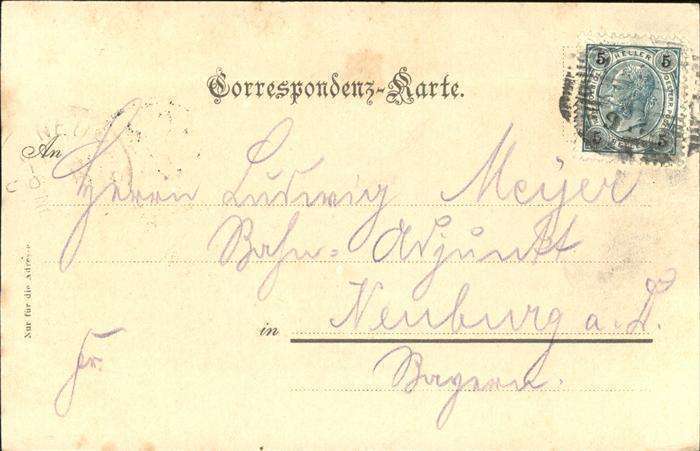 Correspondenz-Karte.
5 HELLER 5
5 5
NEU
An
Herrn Ludwig Meyer
Bahn-Adjunkt
in Neuburg a. D.
Fr. Bayern.
Nur für die Adresse.